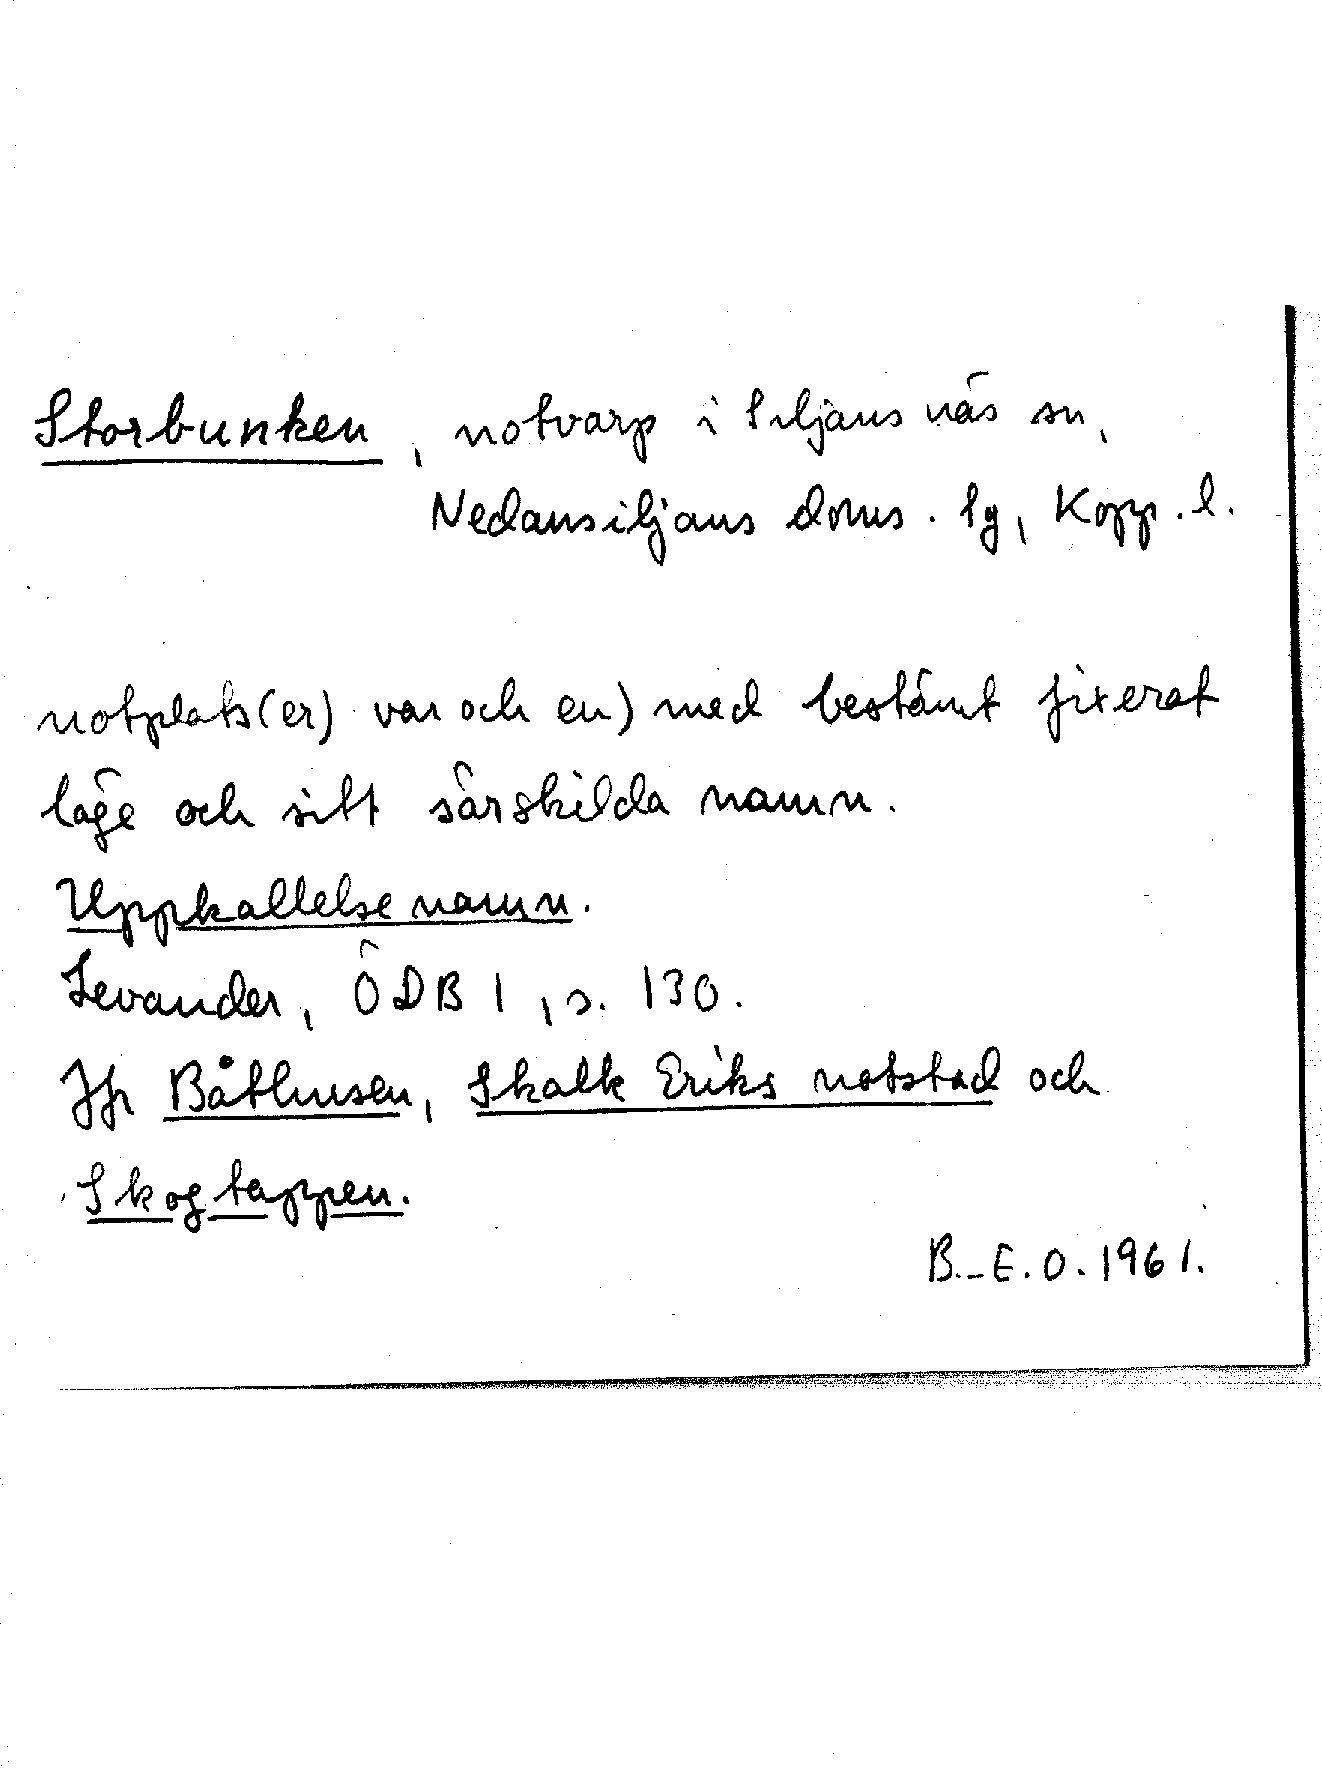 Storbunken, notvarp i Siljansnäs sn,
Nedansiljans doms. lg, Kopp. l.
notplats(er) var och en) med bestämt fixerat
läge och sitt särskilda namn.
Uppkallelsenamn.
Levander, ÖDB 1, s. 130.
Jfr Båthusen, Skalk Eriks notstad och
Skogtappen.
B.-E.O. 1961.